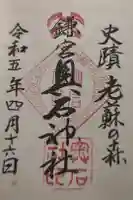 史蹟 老蘇の森
鎌宮 奥石神社
令和五年四月十六日